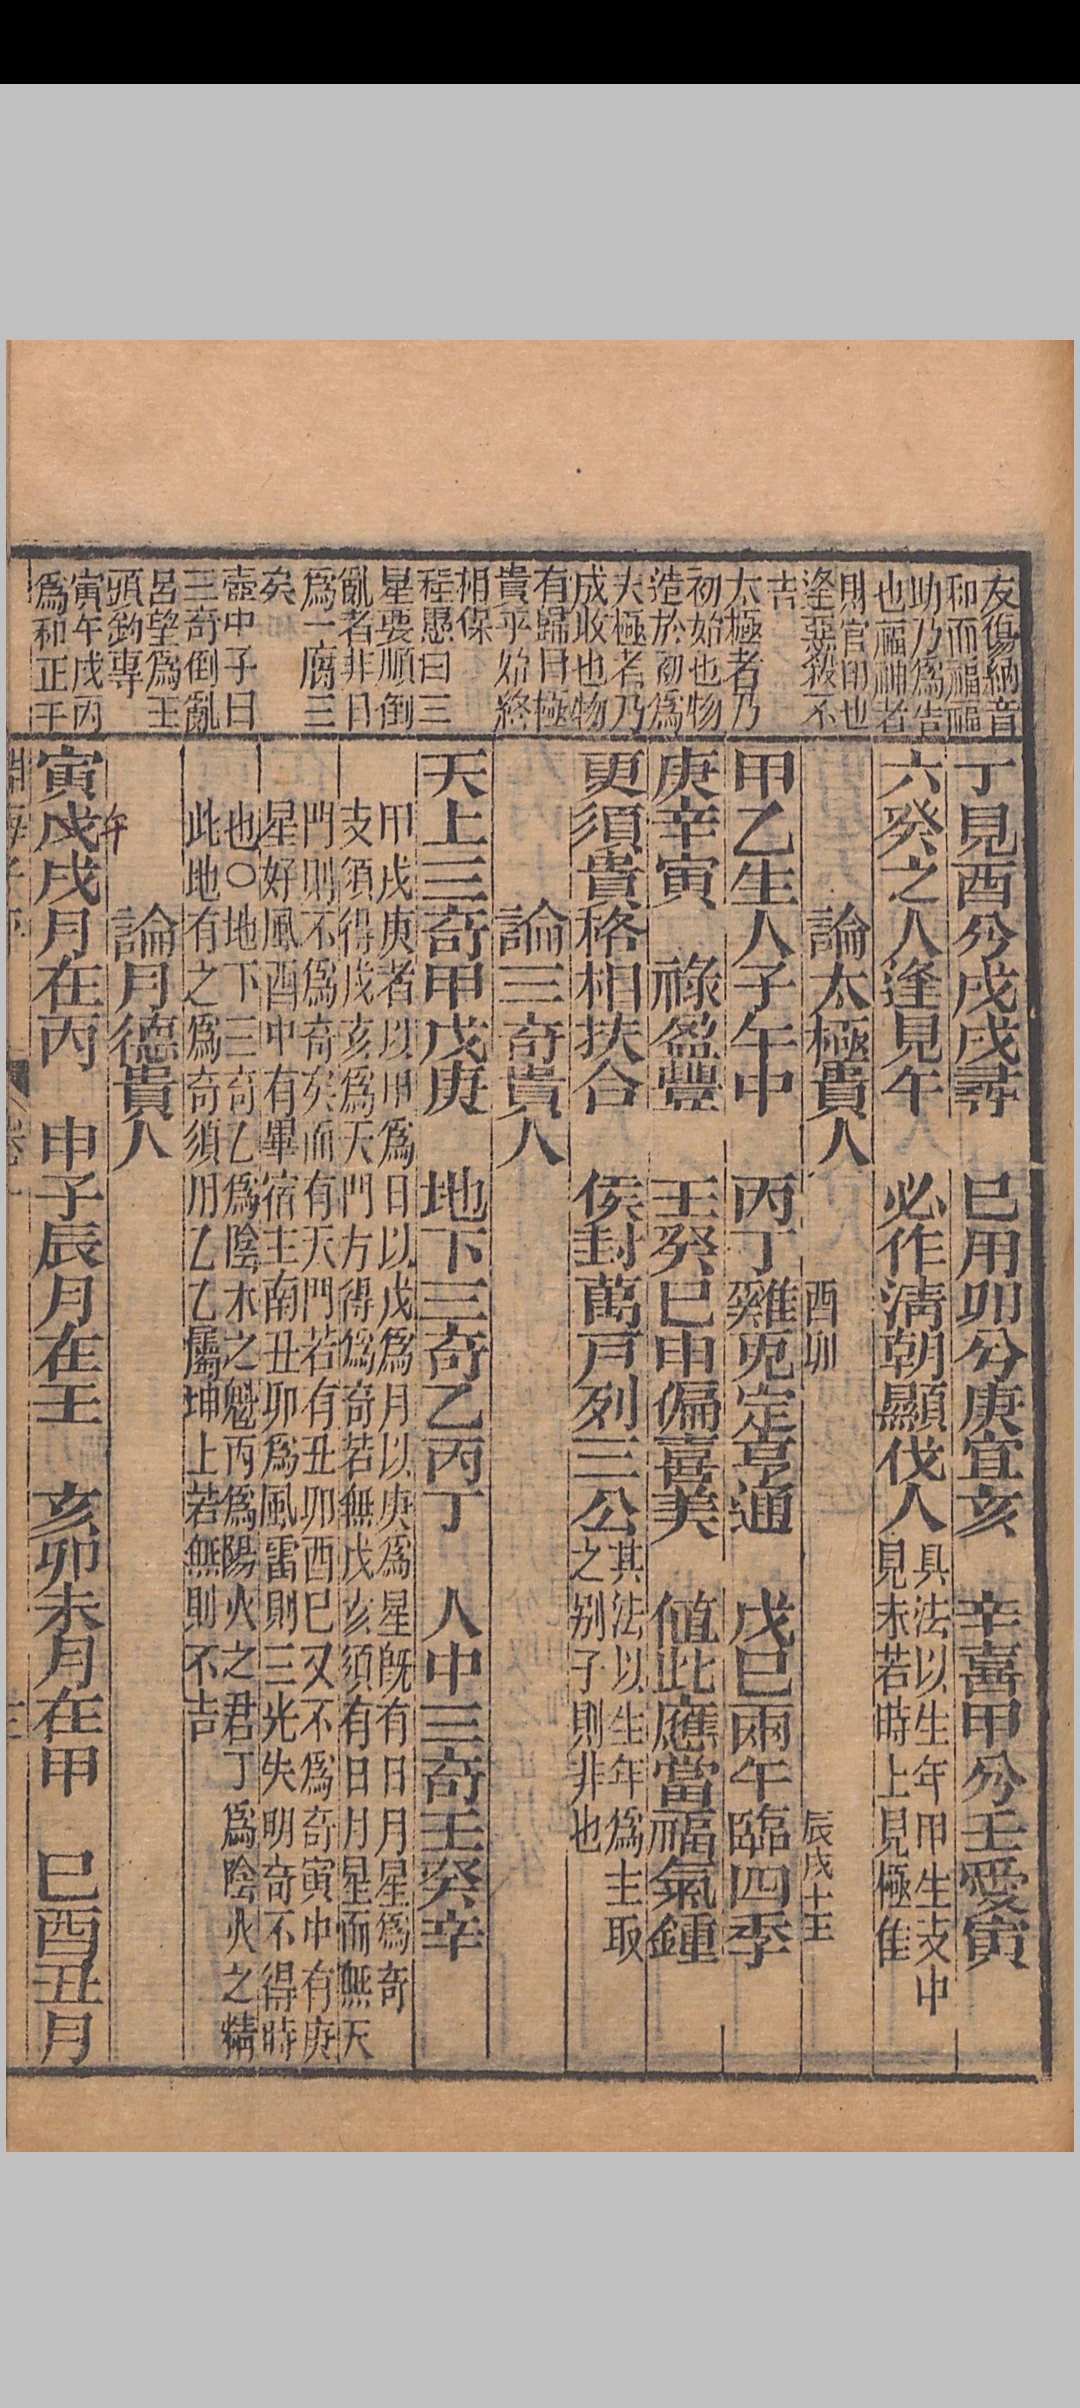 友傷納音
和而福福
助乃爲吉
也福神者
則官印也
逢惡殺不
吉
太極者乃
初始也物
造於初爲
太極者乃
成收也物
有歸曰極
貴乎始終
相保
程愚曰三
星要順倒
亂者非日
爲一腐三
矣
壺中子曰
三奇倒亂
呂望爲王
頭釣專
寅午戌丙
爲和正壬
丁見酉兮戊戌尋 巳用卯兮庚宜亥 辛喜甲兮壬愛寅
六癸之人逢見午 必作淸朝顯伐人
具法以生年甲生支中
見未若時上見極佳
論太極貴人
甲乙生人子午中 丙丁雞兎定亨通 戊巳兩午臨四季
酉卯
辰戌十王
庚辛寅 祿盈豐 壬癸巳申偏喜美 値此應當福氣鍾
更須貴格相扶合 侯封萬戸列三公
其法以生年爲主取
之别子則非也
論三奇貴人
天上三奇甲戊庚 地下三奇乙丙丁 人中三奇壬癸辛
甲戊庚者以甲爲日以戊爲月以庚爲星旣有日月星爲奇
支須得戌亥爲天門方得爲奇若無戌亥須有日月星而無天
門則不爲奇矣而有天門若有丑卯酉巳又不爲奇寅中有庚
星好風酉中有畢宿主南丑卯爲風雷則三光失明奇不得時
也○地下三奇乙爲陰木之魁丙爲陽火之君丁爲陰火之精
此地有之爲奇須用乙乙屬坤上若無則不吉
論月德貴人
午
寅戌戌月在丙 申子辰月在壬 亥卯未月在甲 巳酉丑月